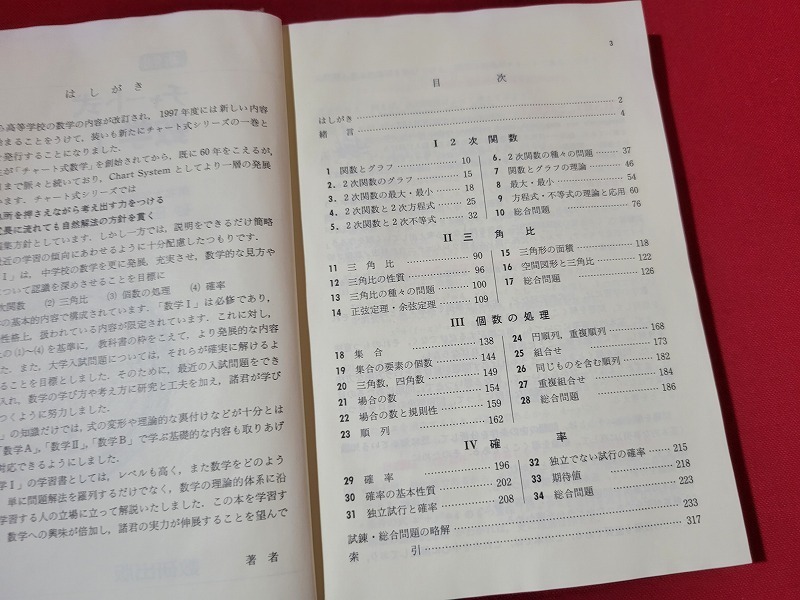 はしがき
高等学校の数学の内容が改訂され，1997年度には新しい内容
まることをうけて，装いも新たにチャート式シリーズの一巻と
発行することになりました．
が「チャート式数学」を創始されてから，既に60年をこえるが，
まで脈々と続いており，Chart System としてより一層の発展
います．チャート式シリーズでは
所を押さえながら考え出す力をつける
に流れても自然解法の方針を貫く
集方針としています．しかし一方では，説明をできるだけ簡略
近の学習の傾向にあわせるように十分配慮したつもりです．
Ⅰ」は，中学校の数学を更に発展，充実させ，数学的な見方や
について認識を深めさせることを目標に
次関数 (2) 三角比 (3) 個数の処理 (4) 確率
の基本的内容で構成されています．「数学Ⅰ」は必修であり，
性格上，扱われている内容が限定されています．これに対し，
の(1)～(4)を基準に，教科書の枠をこえて，より発展的な内容
た．また，大学入試問題については，それらが確実に解けるよ
ることを目標としました．そのために，最近の入試問題をでき
入れ，数学の学び方や考え方に研究と工夫を加え，諸君が学び
つくように努力しました．
」の知識だけでは，式の変形や理論的な裏付けなどが十分とは
「数学A」，「数学Ⅱ」，「数学B」で学ぶ基礎的な内容も取りあげ
対応できるようにしました．
学Ⅰ」の学習書としては，レベルも高く，また数学をどのよう
単に問題解法を羅列するだけでなく，数学の理論的体系に沿
学習する人の立場に立って解説いたしました．この本を学習す
数学への興味が倍加し，諸君の実力が伸展することを望んで
著者
3
目次
はしがき 2
緒言 4
Ⅰ 2次関数
1 関数とグラフ 10
2．2次関数のグラフ 15
3．2次関数の最大・最小 18
4．2次関数と2次方程式 25
5．2次関数と2次不等式 32
6．2次関数の種々の問題 37
7 関数とグラフの理論 46
8 最大・最小 54
9 方程式・不等式の理論と応用 60
10 総合問題 76
Ⅱ 三角比
11 三角比 90
12 三角比の性質 96
13 三角比の種々の問題 100
14 正弦定理・余弦定理 109
15 三角形の面積 118
16 空間図形と三角比 122
17 総合問題 126
Ⅲ 個数の処理
18 集合 138
19 集合の要素の個数 144
20 三角数，四角数 149
21 場合の数 154
22 場合の数と規則性 159
23 順列 162
24 円順列，重複順列 168
25 組合せ 173
26 同じものを含む順列 182
27 重複組合せ 184
28 総合問題 186
Ⅳ 確率
29 確率 196
30 確率の基本性質 202
31 独立試行と確率 208
32 独立でない試行の確率 215
33 期待値 218
34 総合問題 223
試練・総合問題の略解 233
索引 317